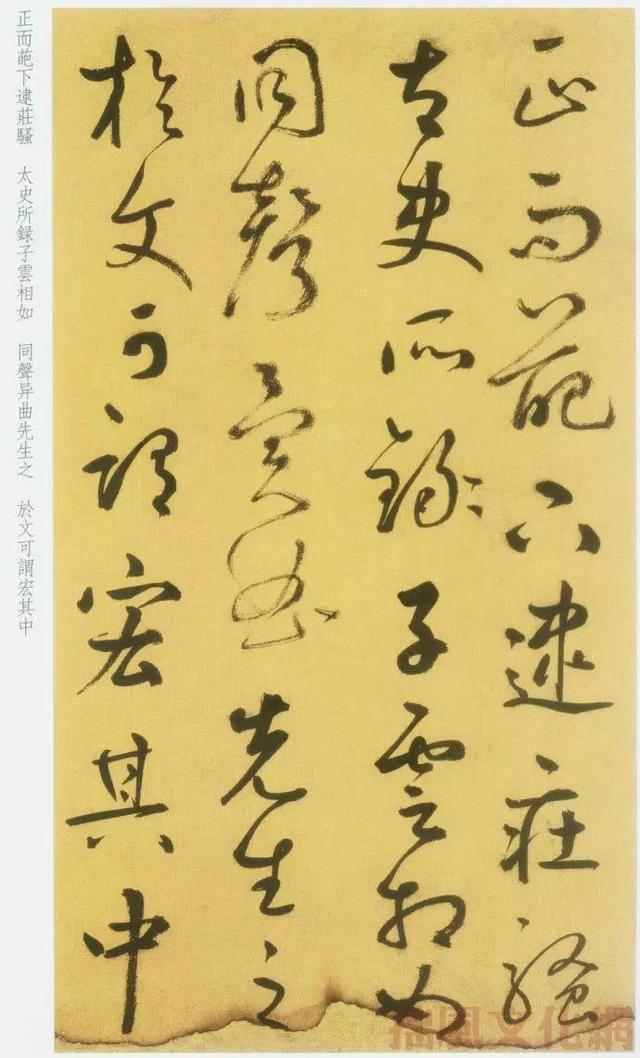 正而葩下逮莊騷
太史所録子雲相如
同聲异曲先生之
於文可謂宏其中
正而葩下逮莊騷　太史所録子雲相如　同聲异曲先生之　於文可謂宏其中
摇風文化網